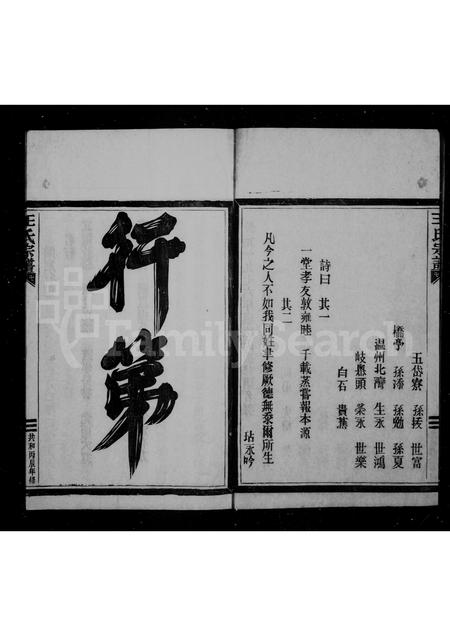 王氏宗譜
五岱寮 孫援 世富
橋亭 孫漆 孫勉 孫夏
溫州北濟 生永 世鴻
岐頭 榮永 世樂
白石 貴蕉
詩曰 其一
一堂孝友敦雍睦 千載蒸嘗報本源
其二
凡今之人不如我同姓聿修厥德無忝爾所生
玷永吟
行第
王氏宗譜
共和丙辰年修
FamilySearch